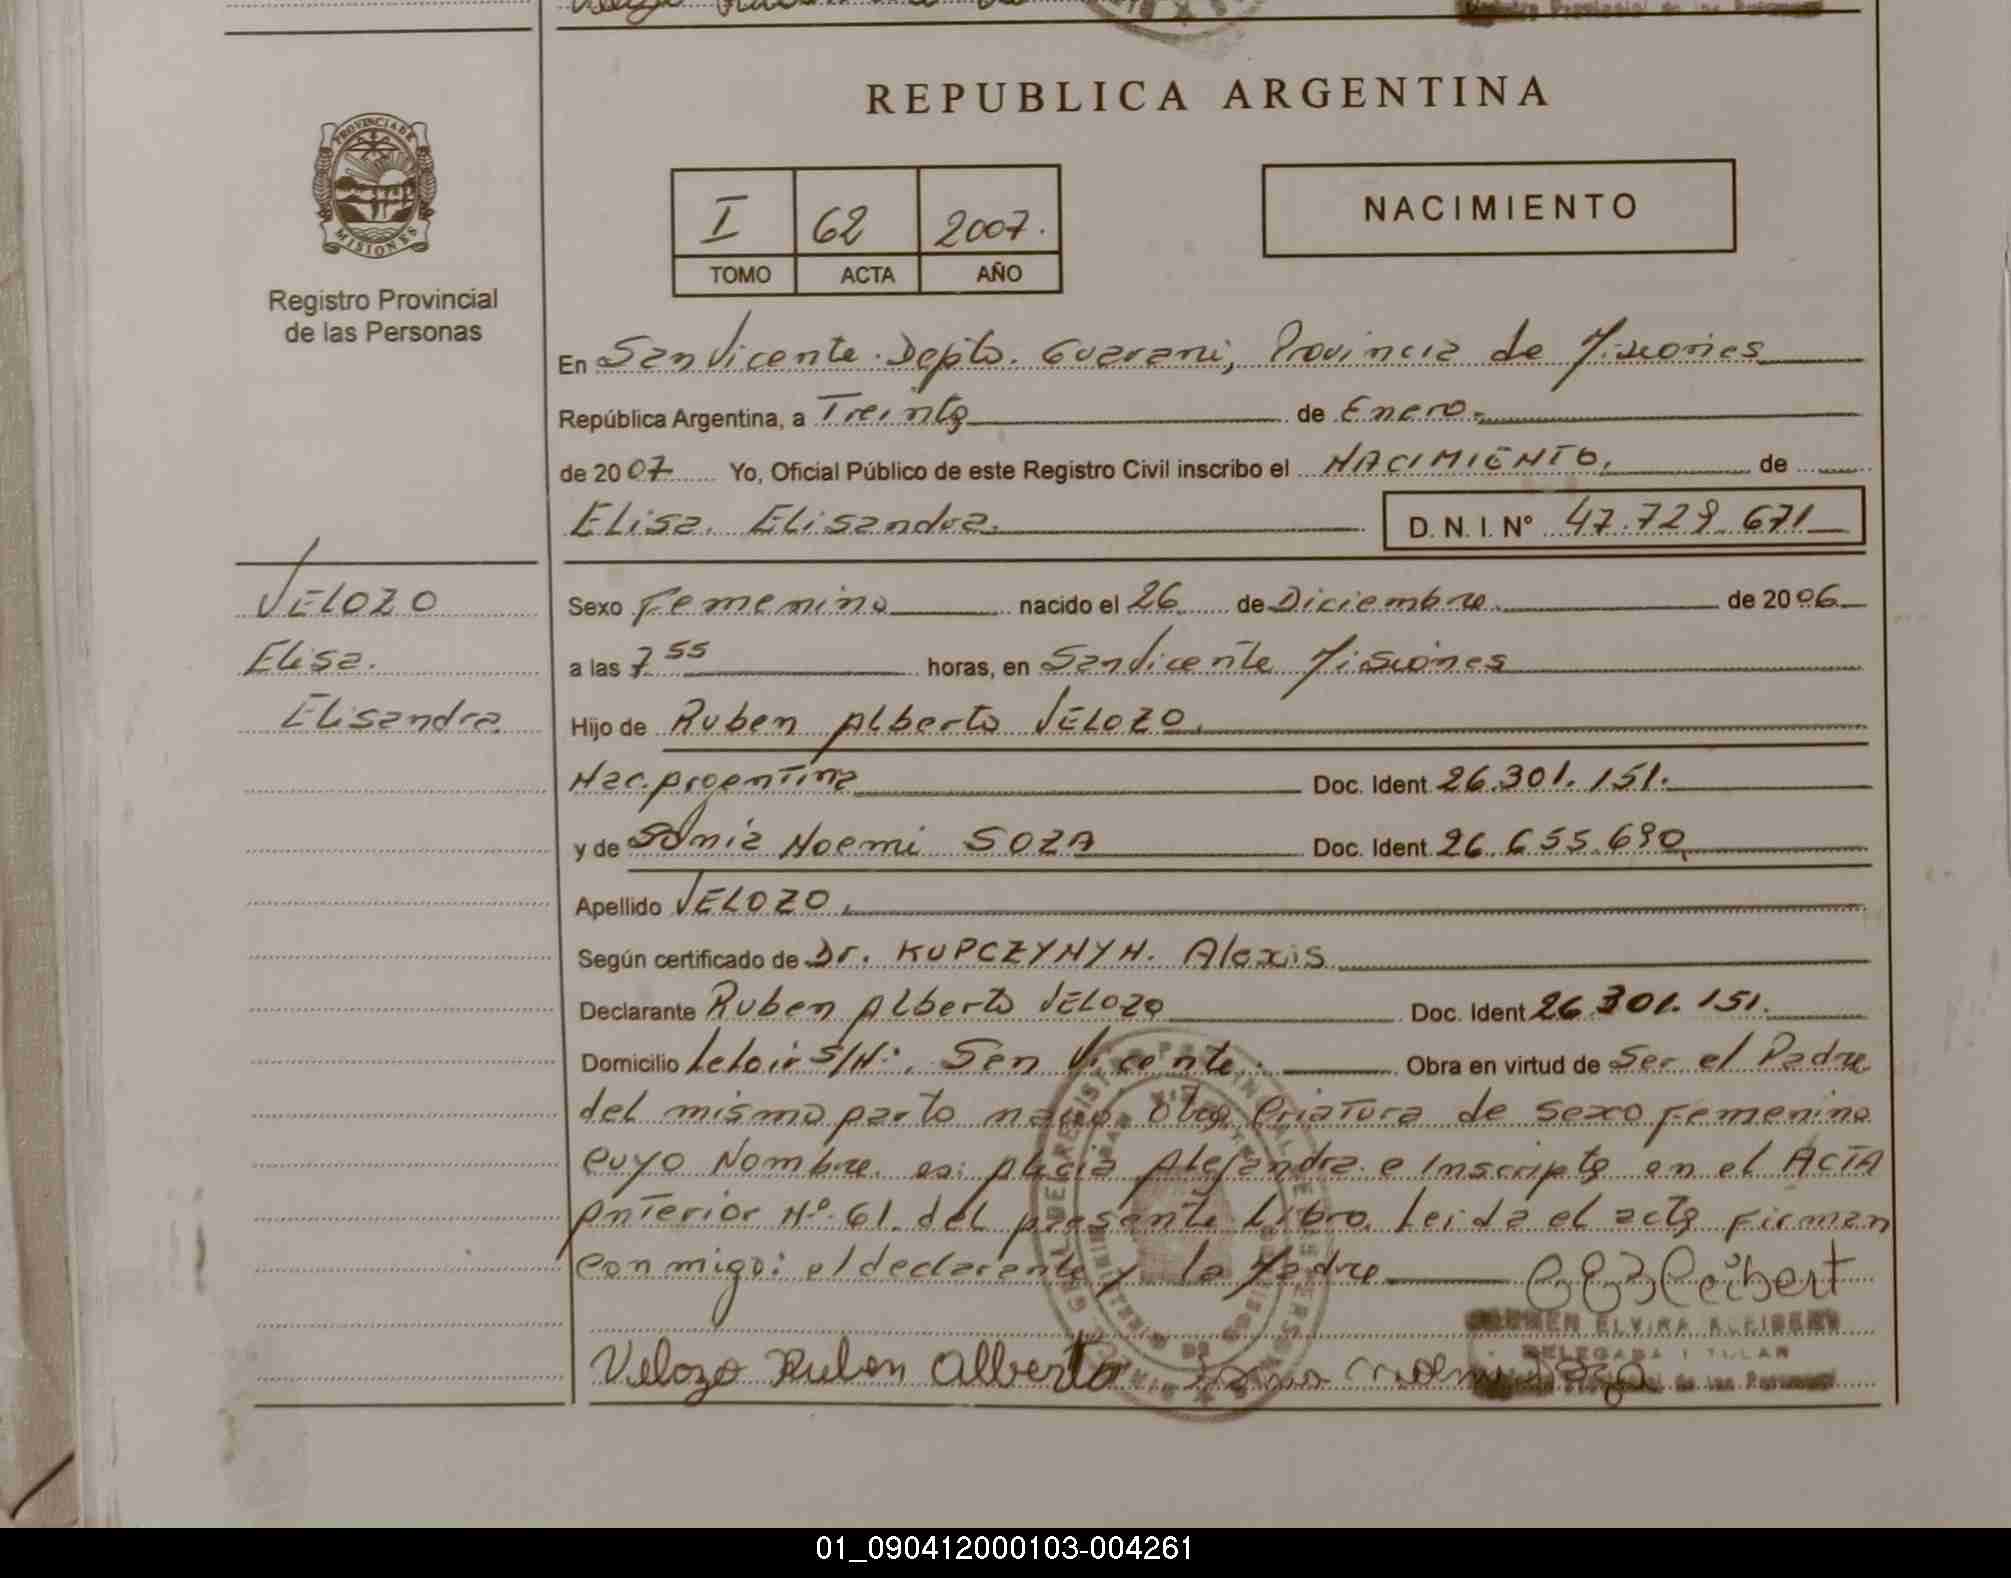 REPUBLICA ARGENTINA
PROVINCIA DE
MISIONES
Registro Provincial
de las Personas
I 62 2007.
TOMO ACTA AÑO
NACIMIENTO
En San Vicente. Depto. Guarani, Provincia de Misiones
República Argentina, a Treinta de Enero.
de 2007 Yo, Oficial Público de este Registro Civil inscribo el NACIMIENTO, de
Elisa. Elisandra. D. N. I. N° 47.729.671
VELOZO
Elisa.
Elisandra.
Sexo Femenino nacido el 26 de Diciembre de 2006
a las 7 55 horas, en San Vicente Misiones
Hijo de Ruben Alberto VELOZO.
Nac. Argentina Doc. Ident 26.301.151.
y de Sonia Noemi SOZA Doc. Ident 26.655.690
Apellido VELOZO.
Según certificado de Dr. KUPCZYNYN. Alexis
Declarante Ruben Alberto VELOZO Doc. Ident 26.301.151.
Domicilio Leloir S/N:. San Vicente. Obra en virtud de Ser el Padre
del mismo parto nacio otra Criatura de sexo Femenino
cuyo Nombre es: Alicia Alejandra e Inscripta en el ACTA
Anterior Nº 61 del presente Libro. Leida el acta Firman
conmigo: el declarante y la Madre
CARMEN ELVIRA KLEIBERT
DELEGADA TITULAR
Registro Provincial de las Personas
Velozo Ruben Alberto
01_090412000103-004261